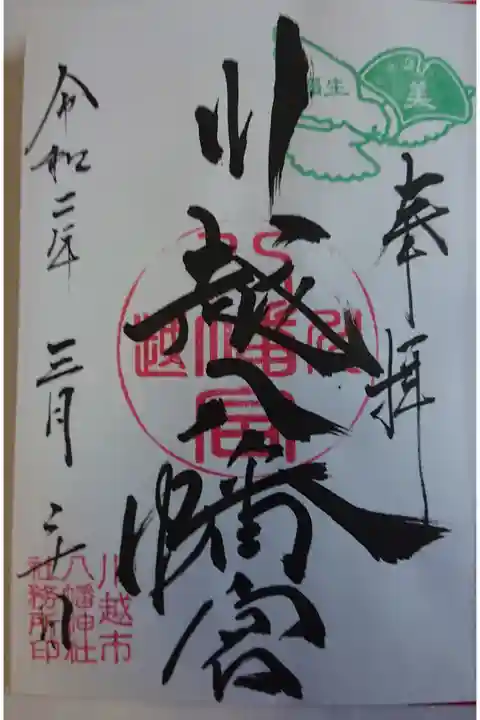 奉拝
川越八幡宮
令和二年 三月 二十日
川越市
八幡神社
社務所印